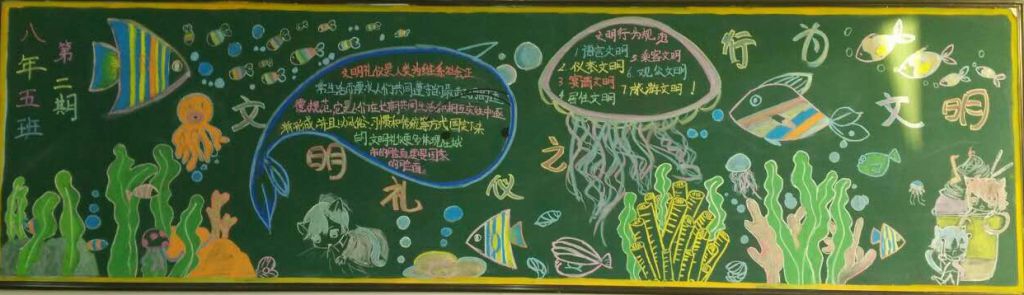 八年五班
第二期
文明礼仪之
行为文明
文明礼仪是人类为维系社会正
常生活而要求人们共同遵守的最
德规范,它是人们在长期共同生活和相互交往中逐
渐形成,并且以风俗、习惯和传统等方式固定下来
的
文明行为规范
1.语言文明
2.仪表文明
3.赛酒文明
4.居住文明
5.乘客文明
6.观众文明
7.旅游文明!